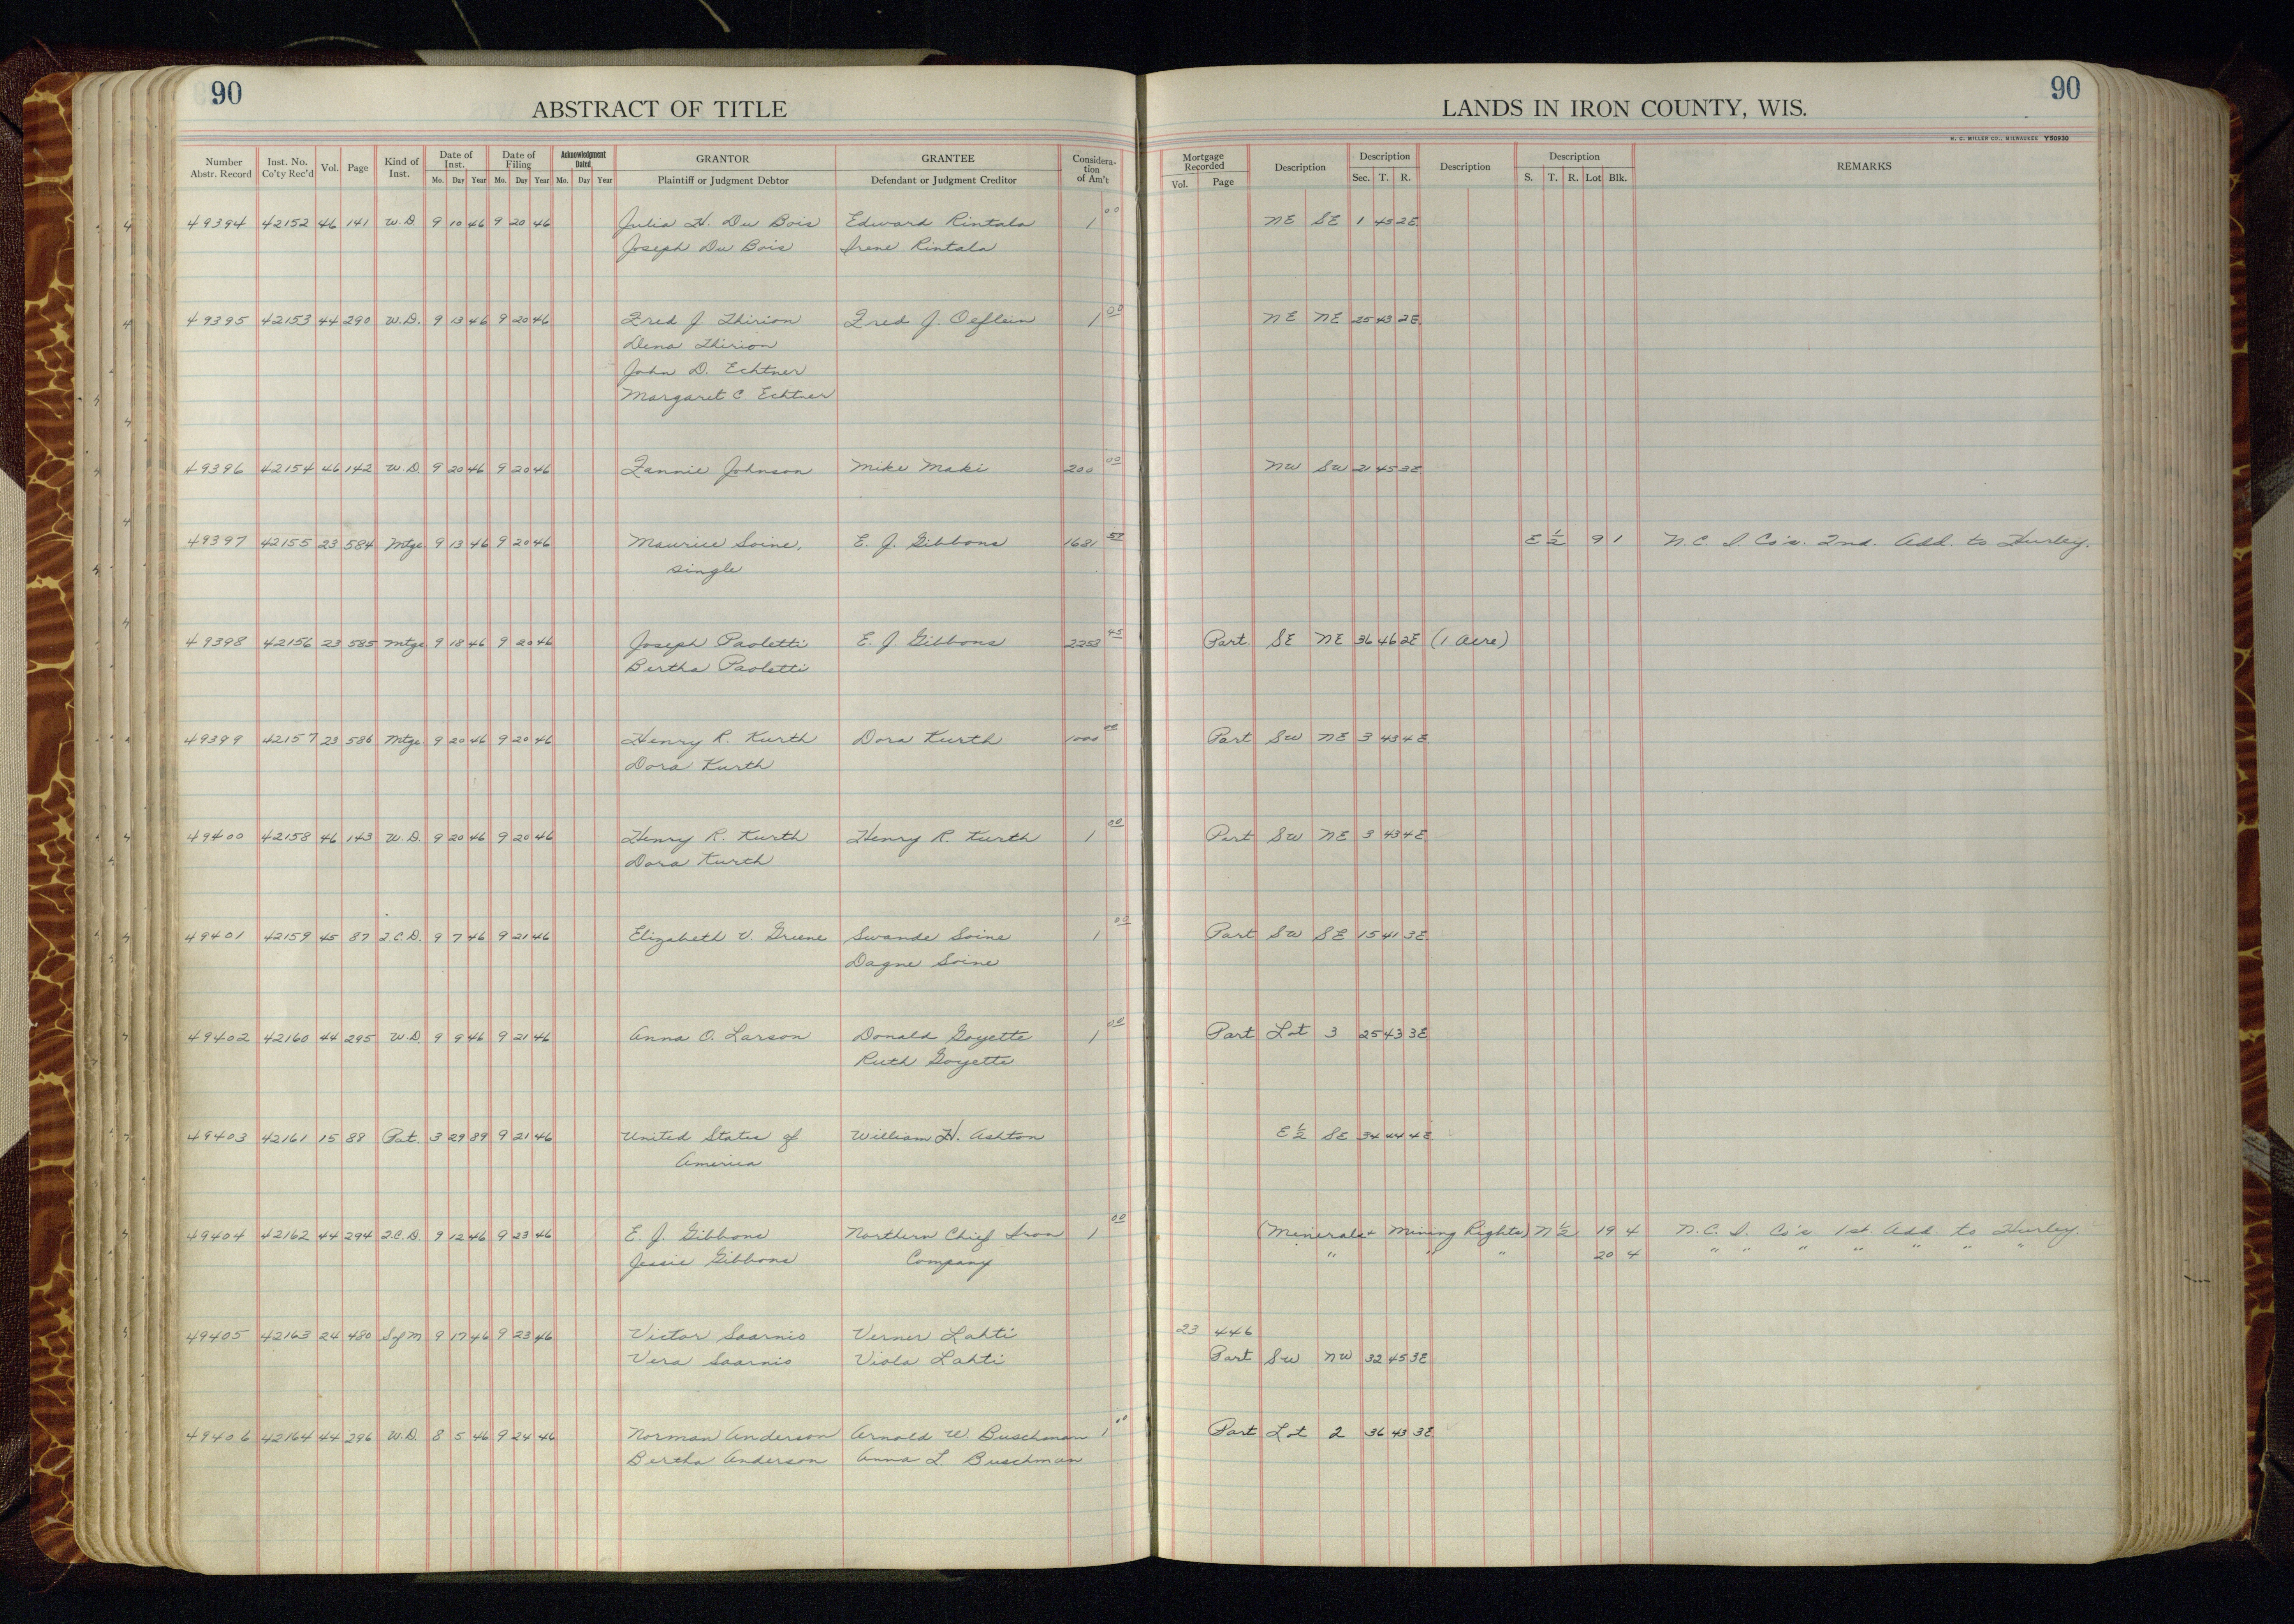 90
ABSTRACT OF TITLE
LANDS IN IRON COUNTY, WIS.
90
H. C. MILLER CO., MILWAUKEE Y50930
Number Abstr. Record Inst. No. Co'ty Rec'd Vol. Page Kind of Inst. Date of Inst. Mo. Day Year Date of Filing Mo. Day Year Acknowledgment Dated Mo. Day Year GRANTOR Plaintiff or Judgment Debtor GRANTEE Defendant or Judgment Creditor Considera-tion of Am't Mortgage Recorded Vol. Page Description Description Sec. T. R. Description Description S. T. R. Lot Blk. REMARKS
49394 42152 46 141 W.D. 9 10 46 9 20 46 Julia H. Du Bois Edward Rintala 1 00 NE SE 1 45 2E
Joseph Du Bois Irene Rintala
49395 42153 44 290 W.D. 9 13 46 9 20 46 Fred J. Thirion Fred J. Oeflein 1 00 NE NE 25 43 2E
Dena Thirion
John D. Echtner
Margaret C. Echtner
49396 42154 46 142 W.D. 9 20 46 9 20 46 Fannie Johnson Mike Maki 200 00 NW SW 21 45 3E
49397 42155 23 584 Mtge 9 13 46 9 20 46 Maurice Soine, E. J. Gibbons 1681 57 E 1/2 9 1 N.C. I. Co's. 2nd. Add. to Hurley.
single
49398 42156 23 585 Mtge 9 18 46 9 20 46 Joseph Paoletti E. J. Gibbons 2253 45 Part. SE NE 36 46 2E (1 Acre)
Bertha Paoletti
49399 42157 23 586 Mtge 9 20 46 9 20 46 Henry R. Kurth Dora Kurth 1000 00 Part SW NE 3 43 4E
Dora Kurth
49400 42158 46 143 W.D. 9 20 46 9 20 46 Henry R. Kurth Henry R. Kurth 1 00 Part SW NE 3 43 4E
Dora Kurth
49401 42159 45 87 2.C.D. 9 7 46 9 21 46 Elizabeth V. Greene Swande Soine 1 00 Part SW SE 15 41 3E
Dagne Soine
49402 42160 44 295 W.D. 9 9 46 9 21 46 Anna O. Larson Donald Goyette 1 00 Part Lot 3 25 43 3E
Ruth Goyette
49403 42161 15 88 Pat. 3 29 89 9 21 46 United States of William H. Ashton E 1/2 SE 34 44 4E
America
49404 42162 44 294 2.C.D. 9 12 46 9 23 46 E. J. Gibbons Northern Chief Iron 1 00 (Minerals + Mining Rights) N 1/2 19 4 N.C. I. Co's 1st. Add. to Hurley.
Jessie Gibbons Company " " " 20 4 " " " " " " "
49405 42163 24 480 S of M 9 17 46 9 23 46 Victor Saarnio Verner Lahti 23 446
Vera Saarnio Viola Lahti Part SW NW 32 45 3E
49406 42164 44 296 W.D. 8 5 46 9 24 46 Norman Anderson Arnold W. Buschman 1 00 Part Lot 2 36 43 3E
Bertha Anderson Anna L. Buschman